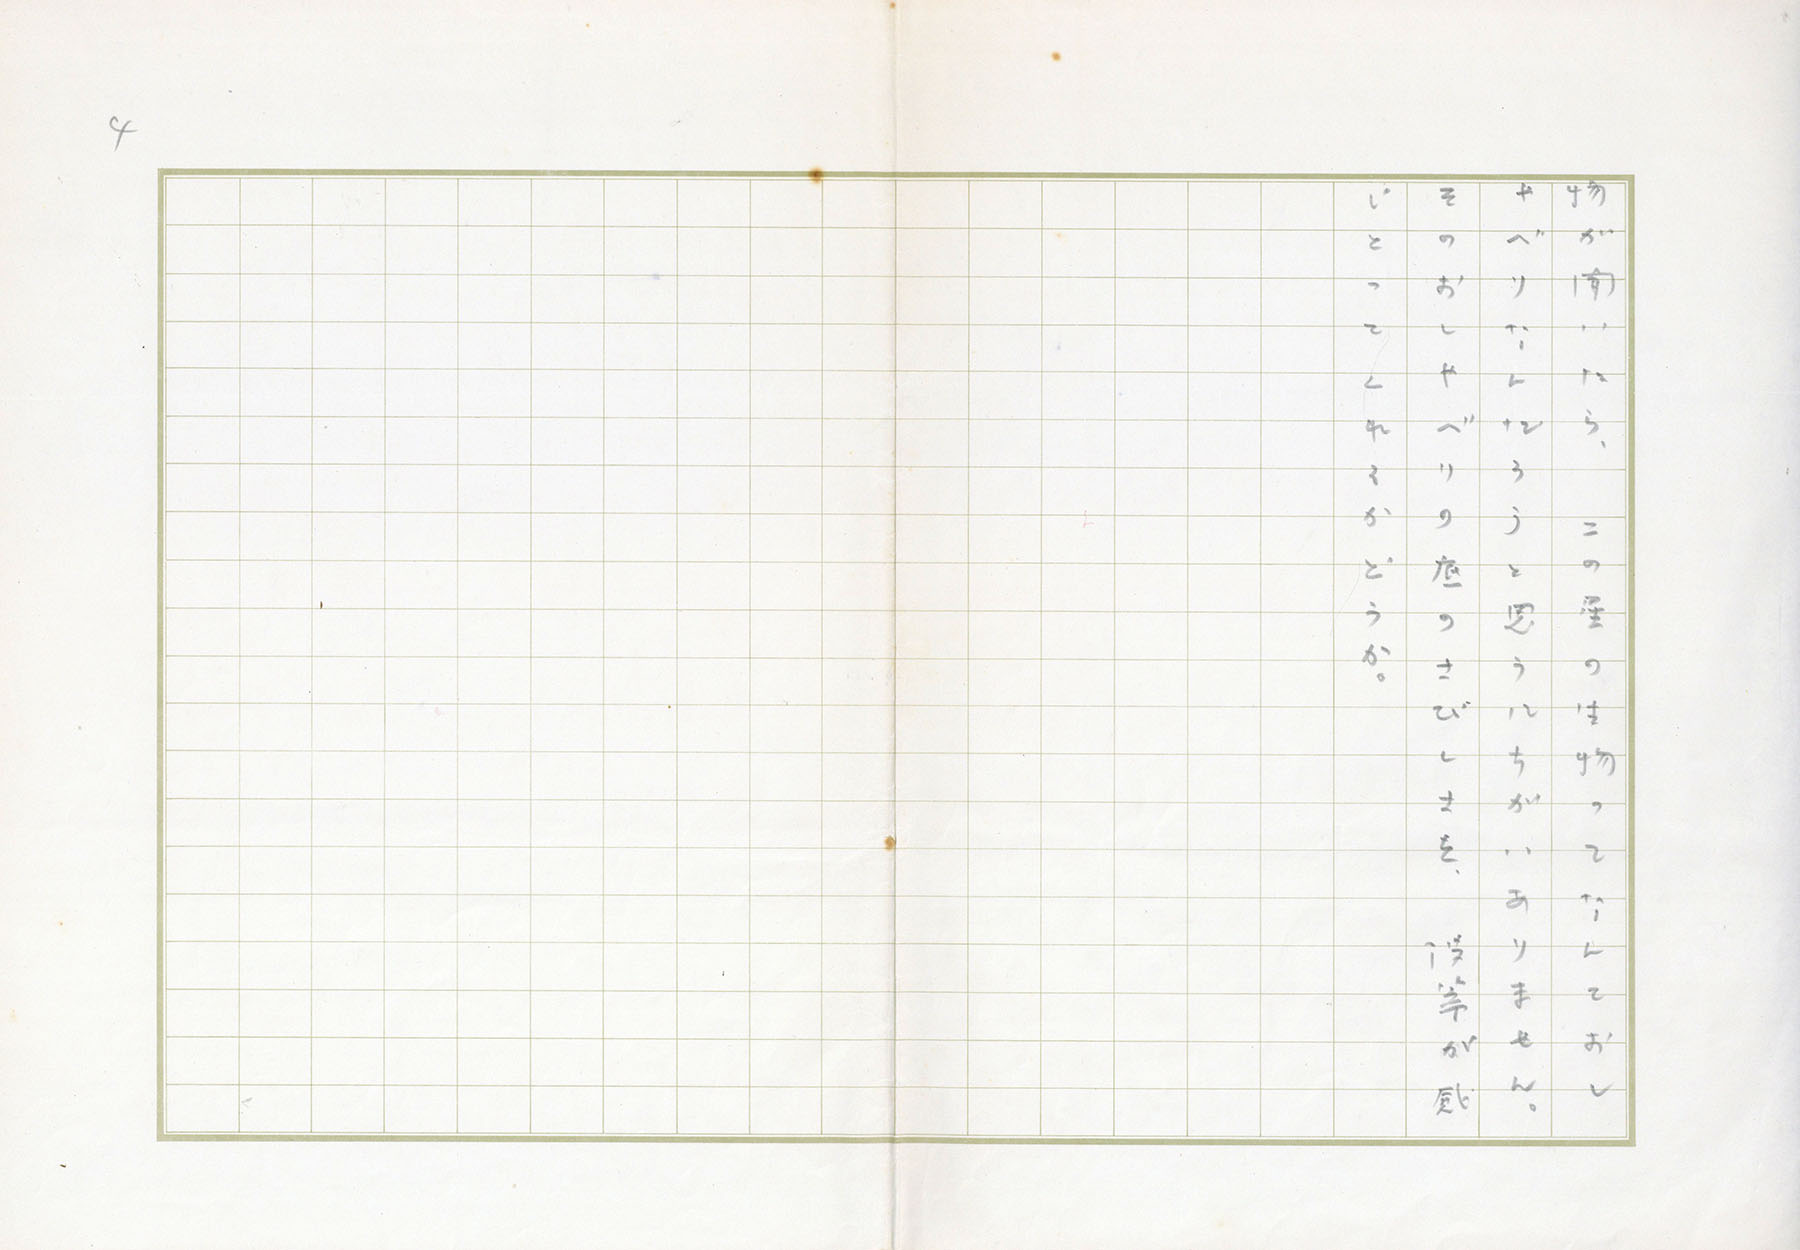 4
物が聞いたら、 この星の生物ってなんておし
ゃべりなんだろうと思うにちがいありません。
そのおしゃべりの底のさびしさを、 彼等が感
じとってくれるかどうか。